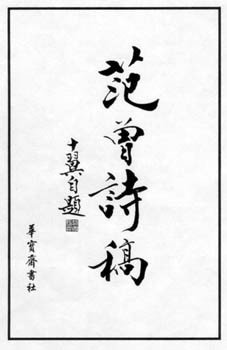 范曾詩稿
十翼自題
華寳齋書社